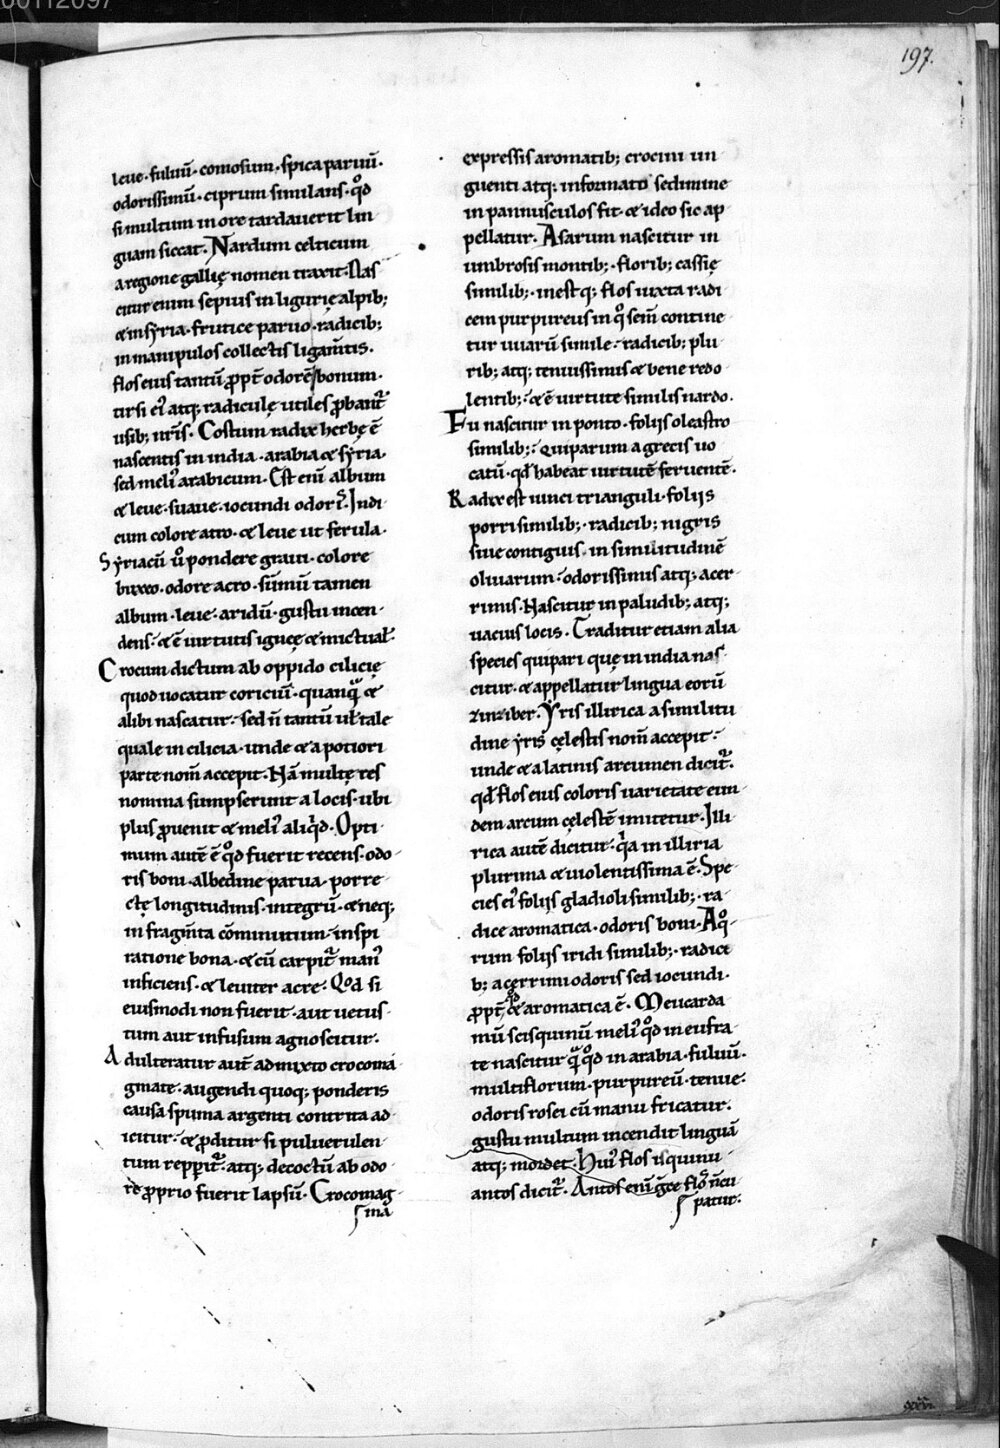 00112097
197.
leue· fuluū· comosum· spica paruū·
odorissimū· ciprum similans· qͦd
si multum in ore tardauerit lin
guam siccat. Nardum celticum
a regione gallię nomen traxit. Nas
citur enim sepius in ligurię alpib;
& in syria· frutice paruo· radicib;
in manipulos collectis ligam̄tis.
flos eius tantū ꝓpt̄ odorē bonum·
tirsi eiꝰ atq; radiculę utiles ꝓbant᷑
usib; nr̄is. Costum radix herbę ē
nascentis in india· arabia & syria·
sed meliꝰ arabicum. Est enī album
& leue· suaue· iocundi odoris. Indi
cum colore atro· & leue ut ferula·
Syriacū ūͦ pondere graui· colore
buxeo· odore acro· sūmū tamen
album· leue· aridū· gustu incen-
dens· & ē uirtutis ignęę & mictual̄.
Crocum dictum ab oppido cilicię
quod uocatur coriciū· quanqͣ &
alibi nascatur· sed n̄ tantū ul̄ tale
quale in cilicia· unde & a potiori
parte nom̄ accepit. Nā multę res
nomina sumpserunt a locis· ubi
plus ꝓuenit & meliꝰ aliqͥd. Opti
mum autē ē qͦd fuerit recens· odo-
ris boni· albedine parua· porre-
ctę longitudinis· integrū· & neq;
in fragm̄ta cōminutum· inspi
ratione bona· & cū carpit᷑ manꝰ
inficiens· & leuiter acre. Qͦd si
eiusmodi non fuerit· aut uetus-
tum aut infusum agnoscitur.
Adulteratur aut̄ admixto crocoma
gmate· augendi quoq; ponderis
causa spuma argenti contrita ad-
icitur· & ꝓditur si puluerulen-
tum repperit᷑· atq; decoctū ab odo-
re ꝓprio fuerit lapsū. Crocomag-
ma
expressis aromatib; crocini un
guenti atq; informato sedimine
in pannusculos fit· & ideo sic ap
pellatur. Asarum nascitur in
umbrosis montib;· florib; cassię
similib;· inestq; flos iuxta radi
cem purpureus in qͦ sem̄ contine
tur uuarū simile· radicib; plu
rib; atq; tenuissimis & bene redo-
lentib;· & ē uirtute similis nardo.
Fu nascitur in ponto· foliis oleastro
similib;· Quiparum a grecis uo
catū· qd̄ habeat uirtutē feruentē.
Radix est iunci trianguli· foliis
porri similib;· radicib; nigris
siue contiguis· in similitudinē
oliuarum· odorissimis atq; acer-
rimis. Nascitur in paludib; atq;
uacuis locis. Traditur etiam alia
species quipari quę in india nas-
citur· & appellatur lingua eorū
zinziber. Yris illirica a similitu
dine yris cęlestis nom̄ accepit·
unde & a latinis arcumen dicit᷑.
qd̄ flos eius coloris uarietate eun-
dem arcum cęlestē imitetur. Illi
rica autē dicitur· qͥa in illiria
plurima & uiolentissima ē. Spe-
cies eiꝰ foliis gladioli similib;· ra-
dice aromatica· odoris boni. Aqͦ-
rum foliis iridi similib;· radice
b; acerrimi odoris sed iocundi·
ꝓpt̄ qͦd & aromatica ē. Meu carda
mū scisquinū meliꝰ qͦd in eufra-
te nascitur qͣ qͦd in arabia· fuluū·
multiflorum· purpureū· tenue·
odoris rosei cū manu fricatur·
gustu multum incendit linguā
atq; mordet. Huiꝰ flos isquinu-
antos dicit᷑. Antos enī gͣce flos̄ n̄cu
patur.